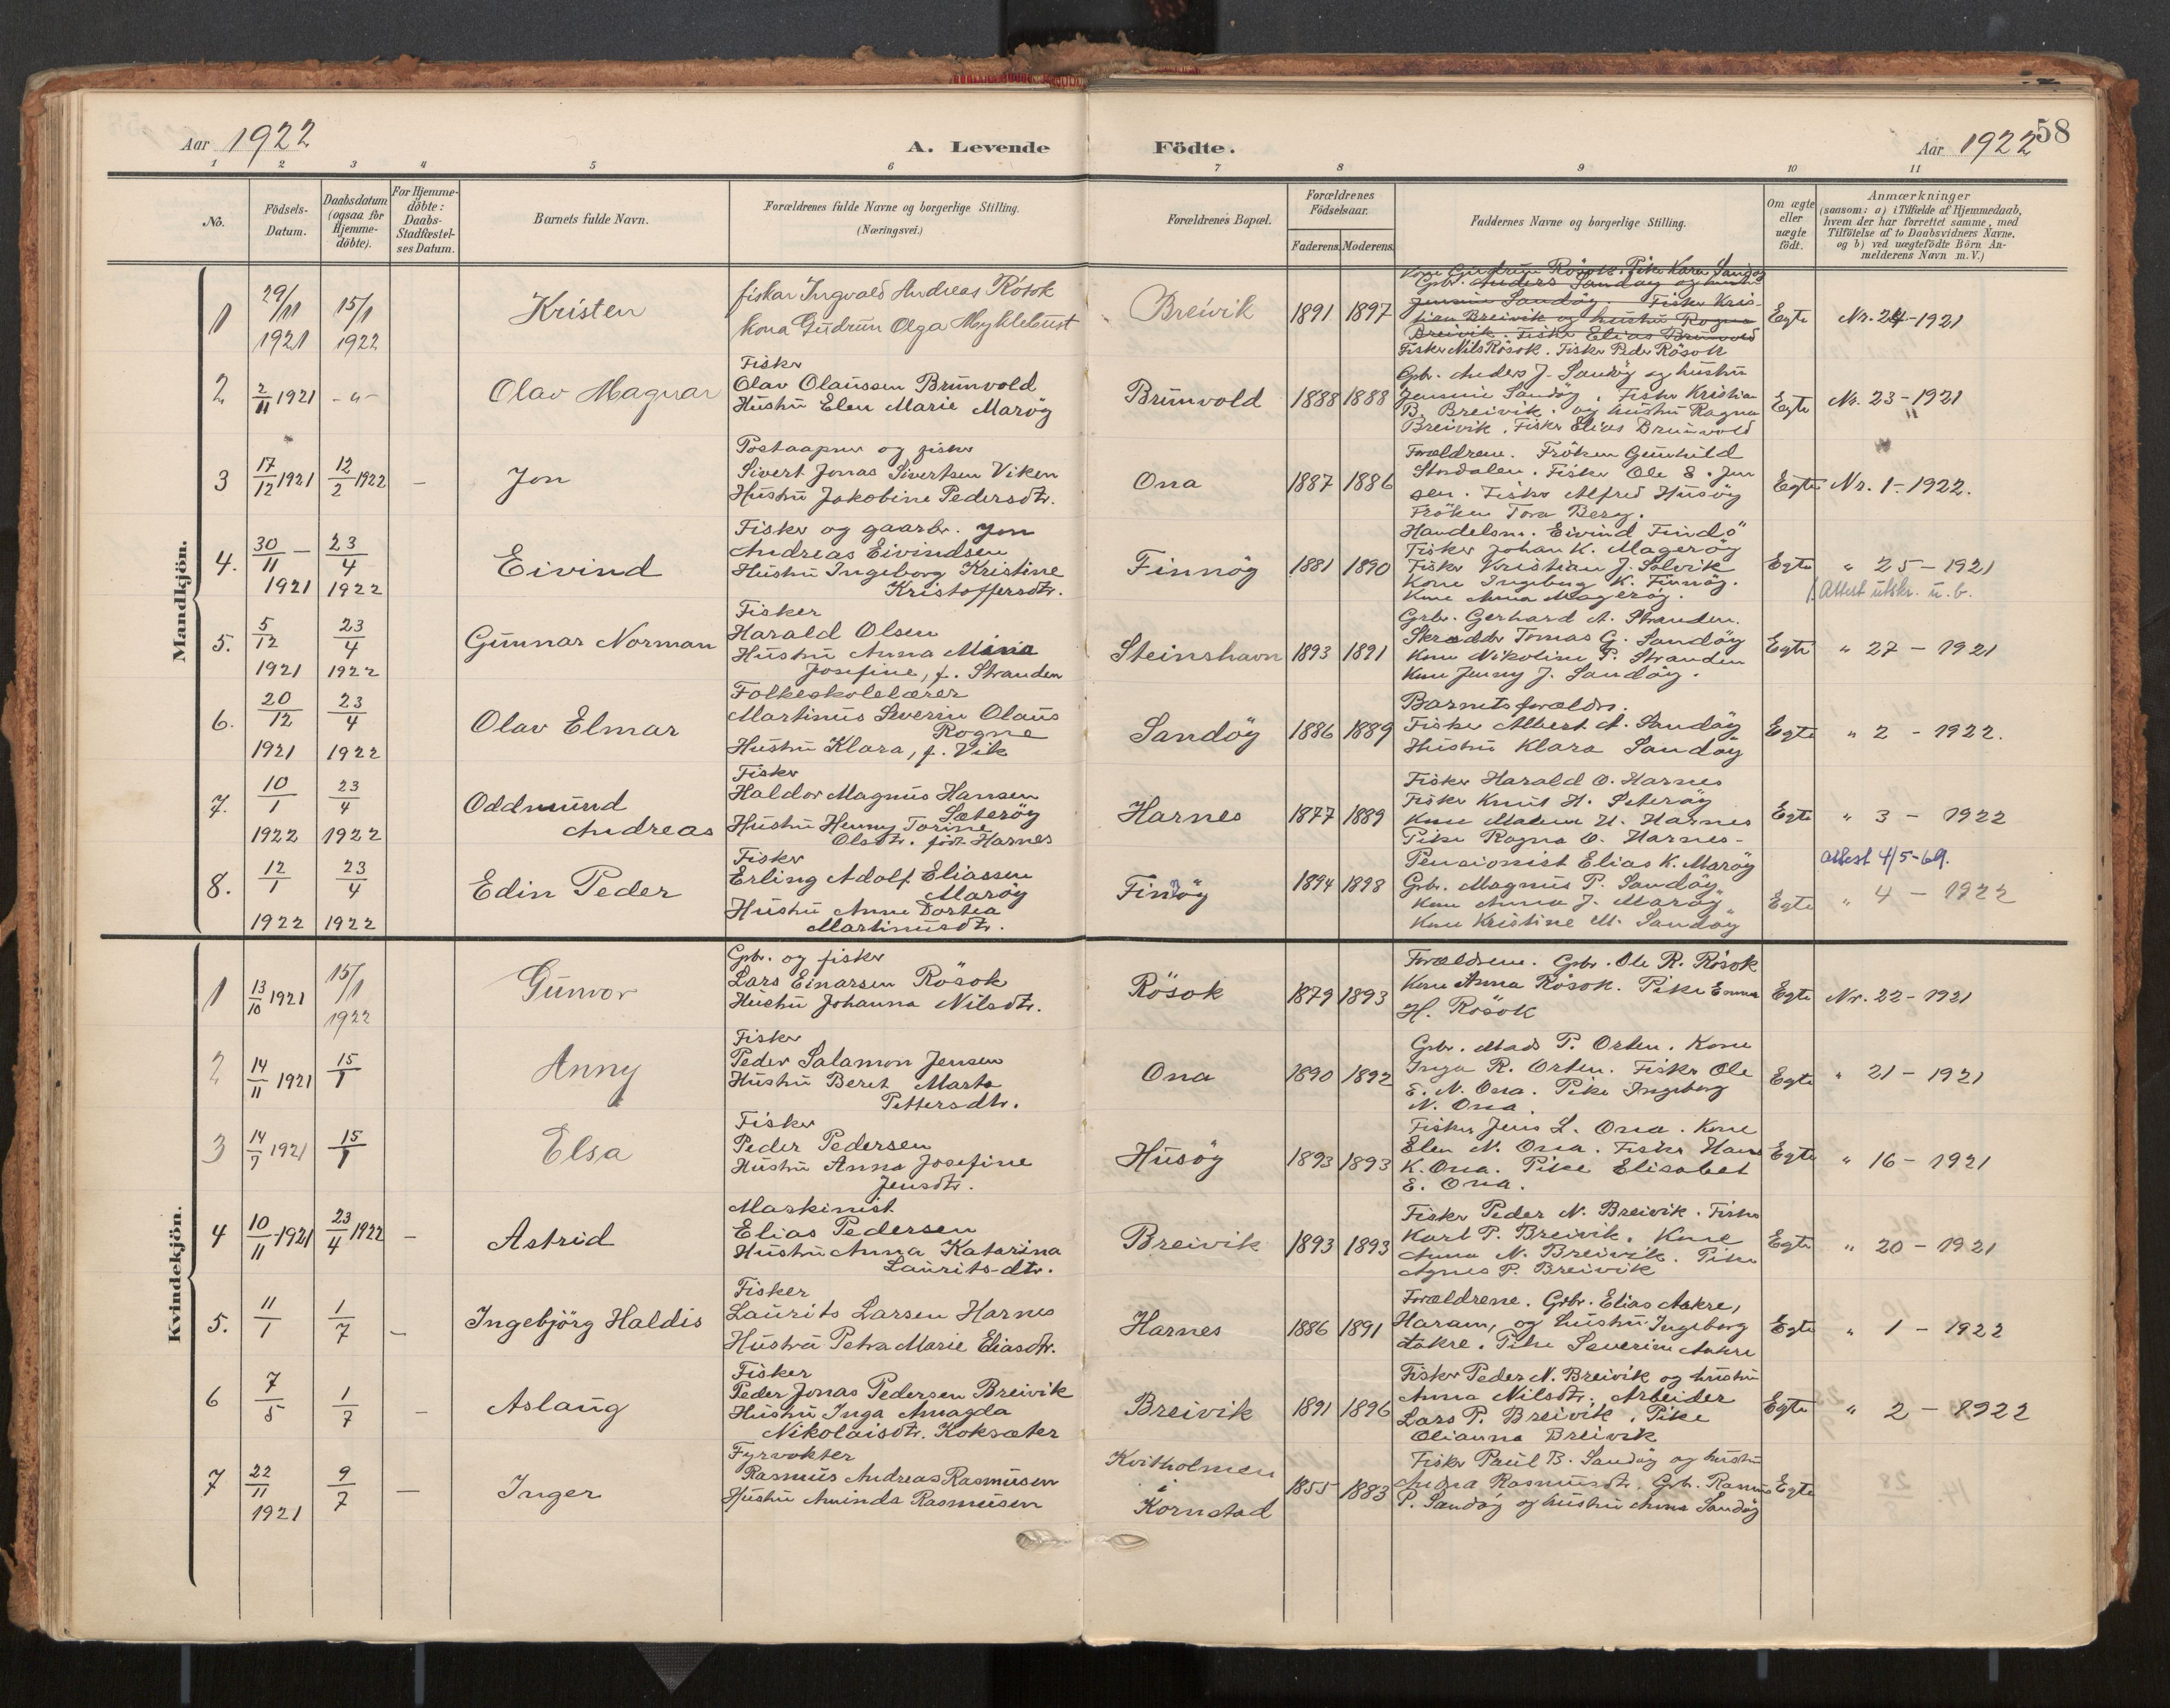 Aar 1922
A. Levende Födte.
Aar 1922
58
1 2 3 4 5 6 7 8 9 10 11
No.
Födsels-Datum.
Daabsdatum (ogsaa for Hjemme-döbte).
For Hjemme-döbte: Daabs-Stadfæstel-ses Datum.
Barnets fulde Navn.
Forældrenes fulde Navne og borgerlige Stilling.
(Næringsvei.)
Forældrenes Bopæl.
Forældrenes Födselsaar.
Faderens. Moderens.
Faddernes Navne og borgerlige Stilling.
Om ægte eller uægte födt.
Anmærkninger
(saasom: a) i Tilfælde af Hjemmedaab,
hvem der har forrettet samme, med
Tilföielse af to Daabsvidners Navne.
og b) ved uægtefödte Börn An-
melderens Navn m. V.)
Mandkjön.
1 29/11 1921 15/1 1922 Kristen
fiskar Ingvald Andreas Rösok
Kona Gudrun Olga Myklebust
Breivik 1891 1897
Kone Gudrun Rösok. Pike Kara Sandöy
Gbr. Anders Sandöy og hustru
Jennie Sandöy. Fisker Kris-
tian Breivik og hustru Ragna
Breivik. Fisker Elias Brunvold
Fisker Nils Rösok. Fisker Peder Rösok
Egte Nr. 24-1921
2 2/11 1921 -"- Olav Magnar
Fisker
Olav Olaussen Brunvold
Hustru Elen Marie Maröy
Brunvold 1888 1888
Gbr. Anders J. Sandöy og hustru
Jennie Sandöy. Fisker Kristian
B. Breivik. og hustru Ragna
Breivik. Fisker Elias Brunvold
Egte Nr. 23-1921
3 17/12 1921 12/2 1922 - Jon
Postaapner og fisker
Sivert Jonas Sivertsen Viken
Hustru Jakobine Pedersdtr.
Ona 1887 1886
Forældrene. Fröken Gunhild
Stordalen. Fisker Ole E. Jen
sen. Fisker Alfred Husöy
Fröken Tora Berg.
Egte Nr. 1-1922.
4. 30/11 - 1921 23/4 1922 Eivind
Fisker og gaarbr. Jon
Andreas Eivindsen
Hustru Ingeborg Kristine
Kristoffersdtr.
Finnöy 1881 1890
Handelsm. Eivind Findö
Fisker Johan K. Mageröy
Fisker Kristian J. Solvik
Kone Ingeborg K. Finnöy.
Kone Anna Mageröy.
Egte " 25-1921
Attest utskr. u. b.
5. 5/12 1921 23/4 1922 Gunnar Norman
Fisker
Harald Olsen
Hustru Anna Maria
Josefine, f. Stranden
Steinshavn 1893 1891
Grbr. Gerhard A. Stranden.
Skrædder Tomas G. Sandöy
Kone Nikoline P. Stranden
Kone Jenny J. Sandöy.
Egte " 27-1921
6. 20/12 1921 23/4 1922 Olav Elmar
Folkeskolelærer
Martinus Severin Olaus
Rogne
Hustru Klara, f. Vik
Sandöy 1886 1889
Barnets forældre.
Fisker Albert A. Sandöy
Hustru Klara Sandöy
Egte " 2-1922.
7. 10/1 1922 23/4 1922 Oddmund
Andreas
Fisker
Haldor Magnus Hansen
Sæteröy
Hustru Henny Torine
Olsdtr. födt Harnes
Harnes 1877 1889
Fisker Harald O. Harnes
Fisker Knut H. Seteröy
Kone H. Harnes
Pike Ragna O. Harnes-
Egte " 3-1922
8. 12/1 1922 23/4 1922 Edin Peder
Fisker
Erling Adolf Eliassen
Maröy
Hustru Anne Dortea
Martinusdtr.
Finnöy 1894 1898
Pensionist Elias K. Maröy
Grbr. Magnus P. Sandöy
Kone Anna J. Maröy
Kone Kristine M. Sandöy
Egte attest 4/5-69.
" 4-1922
Kvindekjön.
1 13/10 1921 15/1 1922 Gunvor
Gbr. og fisker
Lars Einarsen Rösok
Hustru Johanna Nilsdtr.
Rösok 1879 1893
Forældrene. Gbr. Ole R. Rösok
Kone Anna Rösok. Pike Emma
H. Rösok
Egte Nr. 22-1921
2 14/11 1921 15/1 Anny
Fisker
Peder Salamon Jensen
Hustru Beret Marta
Pettersdtr.
Ona 1890 1892
Gbr. Mads P. Orten. Kone
Inga R. Orten. Fisker Ole
E. N. Ona. Pike Ingeborg
N. Ona.
Egte " 21-1921
3 14/9 1921 15/1 Elsa
Fisker
Peder Pedersen
Hustru Anna Josefine
Jensdtr.
Husöy 1893 1893
Fisker Jens L. Ona. Kone
Elen N. Ona. Fisker Hans
K. Ona. Pike Elisabet
E. Ona.
Egte " 16-1921
4 10/11-1921 23/4 1922 - Astrid
Maskinist
Elias Pedersen
Hustru Anna Katarina
Laurits-dtr.
Breivik 1893 1893
Fisker Peder N. Breivik. Fisker
Karl P. Breivik. Kone
Anna N. Breivik. Pike
Agnes P. Breivik
Egte " 20-1921
5. 11/1 1/7 - Ingebjörg Haldis
Fisker
Laurits Larsen Harnes
Hustru Petra Marie Eliasdtr.
Harnes 1886 1891
Forældrene. Grbr. Elias Aakre,
Haram, og hustru Ingeborg
Aakre. Pike Severine Aakre
Egte " 1-1922
6 7/5 1/7 - Aslaug
Fisker
Peder Jonas Pedersen Breivik
Hustru Inga Amagda
Nikolaisdtr. Koksæter
Breivik 1891 1896
Fisker Peder N. Breivik og hustru
Anna Nilsdtr. Arbeider
Lars P. Breivik. Pike
Olianna Breivik
Egte " 2-1922
7 22/11 1921 9/7 - Inger
Fyrvokter
Rasmus Andreas Rasmusen
Hustru Aminda Rasmusen
Kvitholmen
i
Kornstad 1855 1883
Fisker Paul B. Sandöy og hustru
Rasmusdtr. Grbr. Rasmus
P. Sandöy og hustru Anna Sandöy
Egte